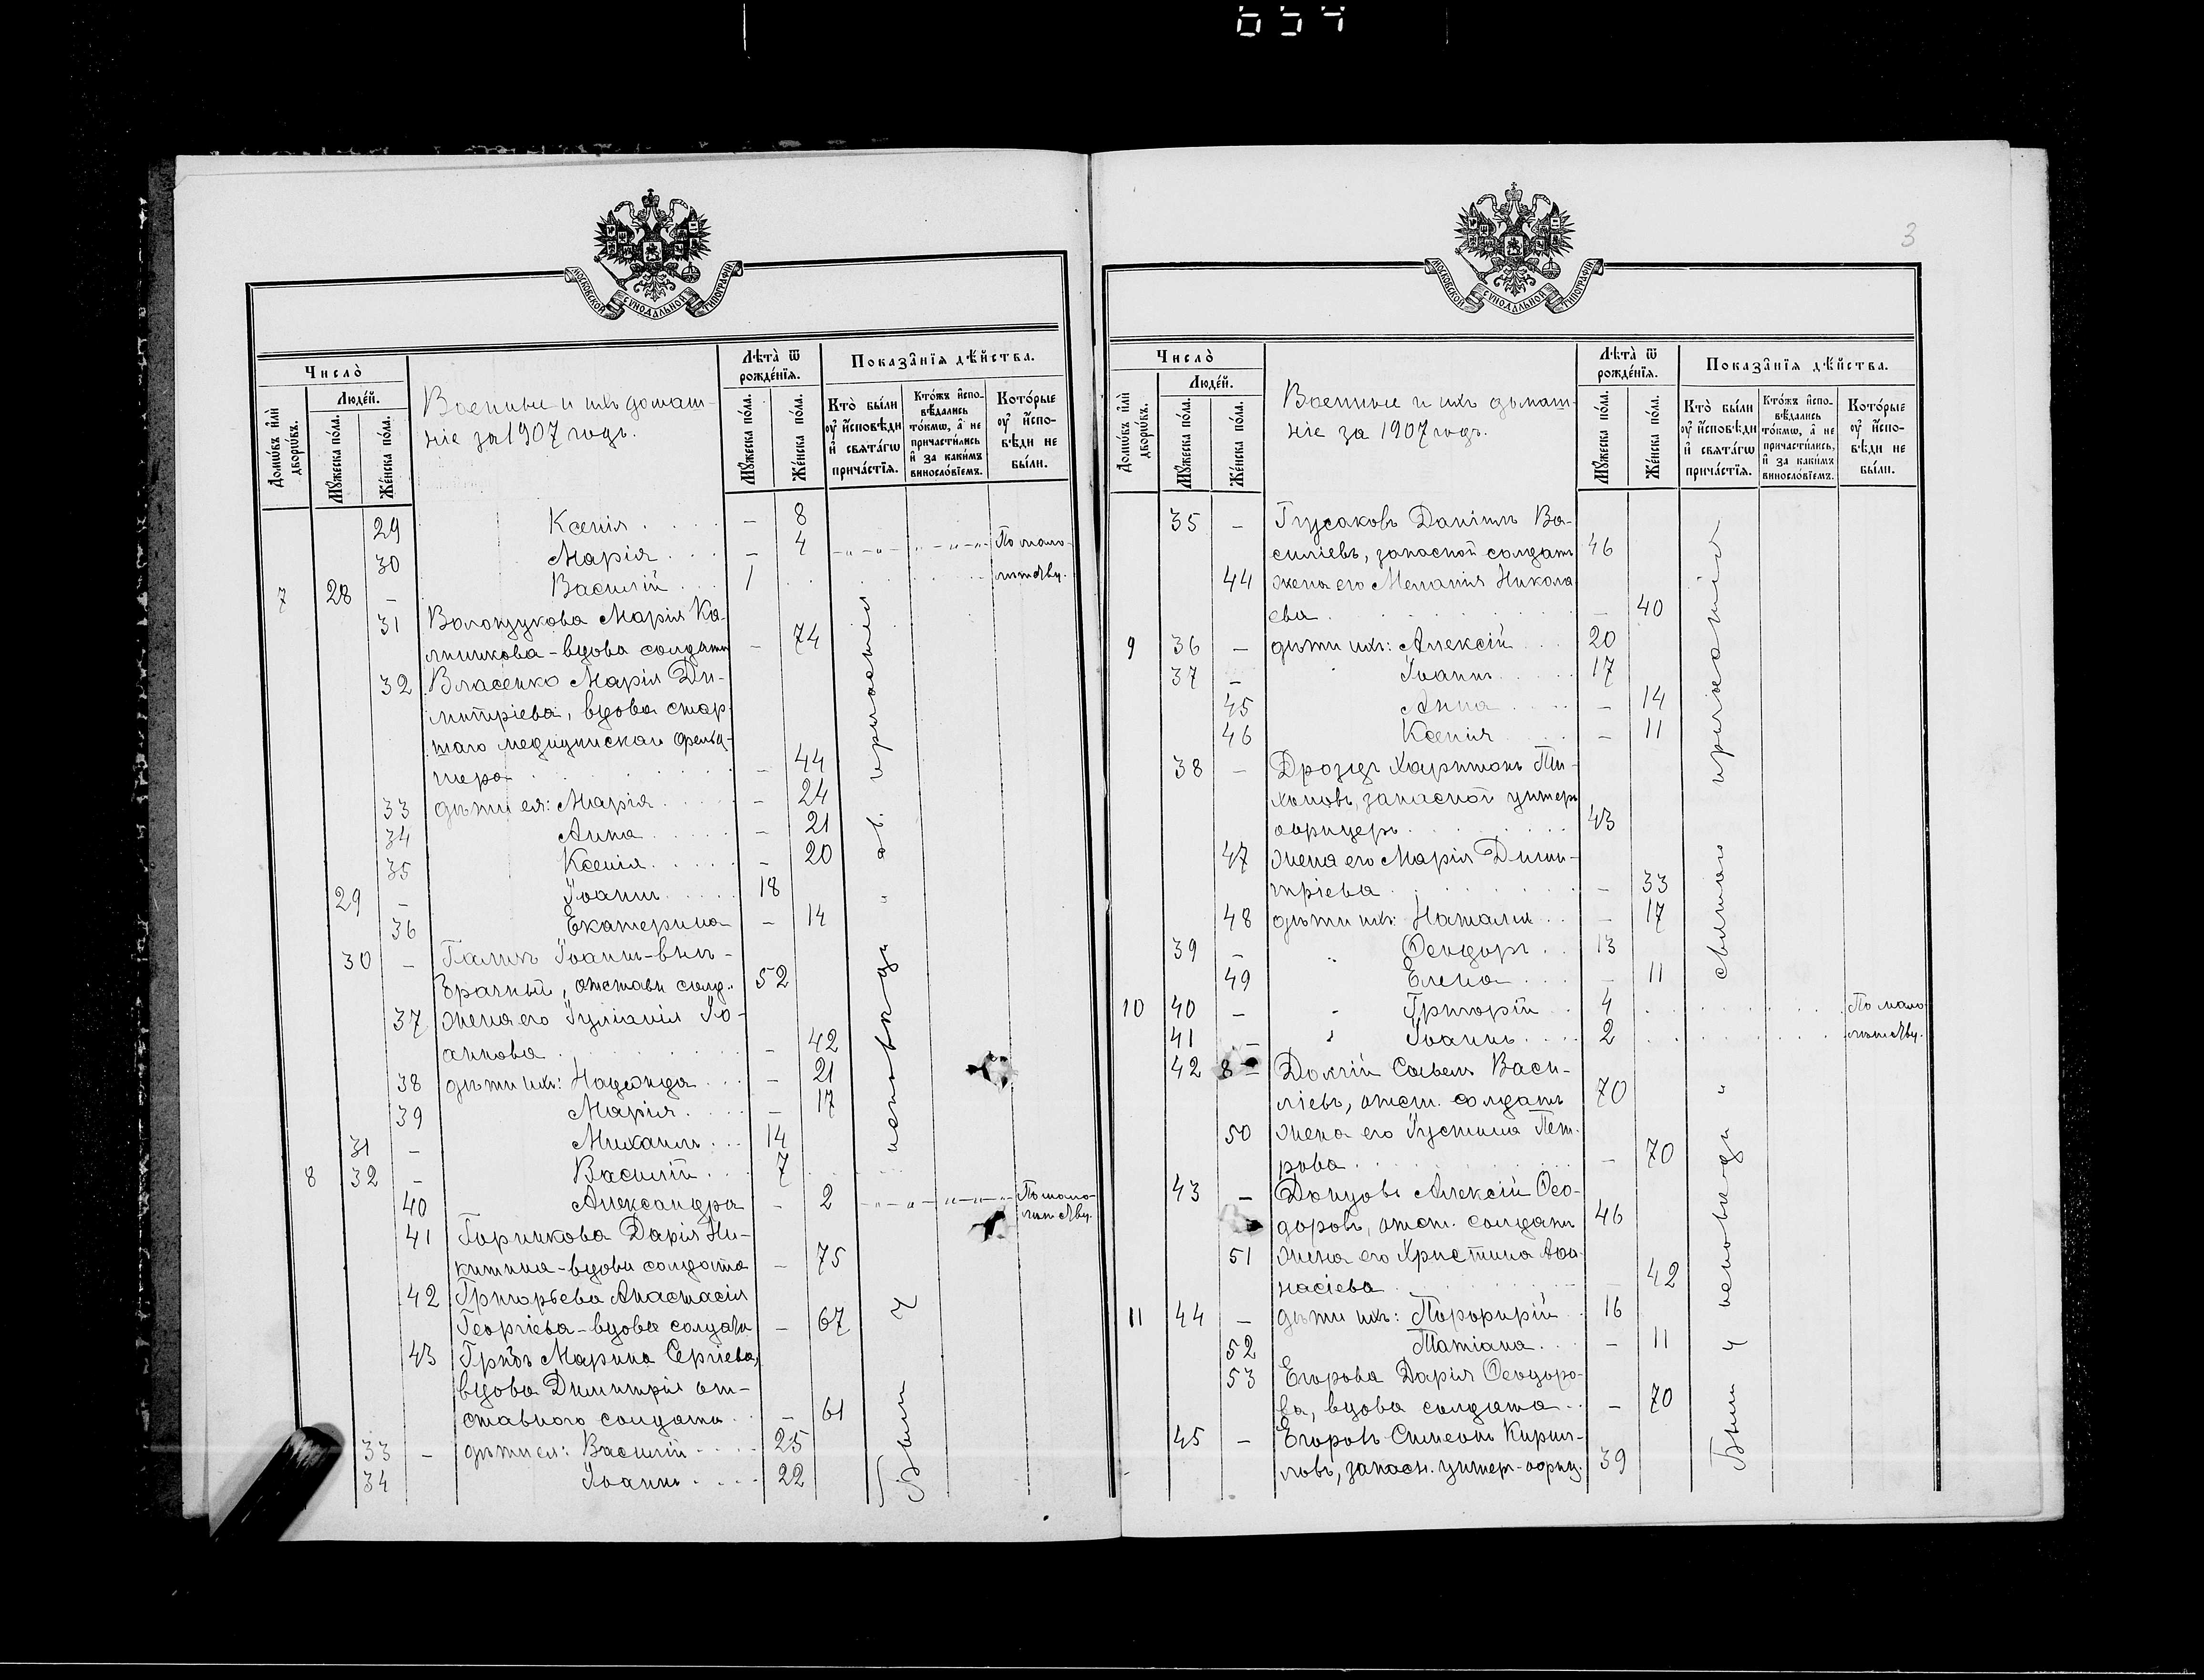 654
МОСКОВСКОЙ СѴНОДАЛЬНОЙ ТИПОГРАФІИ
Число̀
Домѡ́въ и҆лѝ дворѡ́въ.
Люде́й.
Мꙋ́жеска по́ла.
Же́нска по́ла.
Военные и ихъ домаш-
ніе за 1907 годъ.
Лѣ́та ѿ рожде́нїѧ.
Мꙋ́жеска по́ла.
Же́нска по́ла.
Показа̑нїѧ дѣ́йства.
Кто̀ бы́ли ᲂу҆ и҆сповѣ́ди и҆ свѧта́гѡ прича́стїѧ.
Кто́жъ и҆спо- вѣ́дались то́кмѡ, а҆ не причасти́лись и҆ за каки́мъ виносло́вїемъ.
Кото́рые ᲂу҆ и҆спо- вѣ́ди не бы́ли.
29 Ксенія . . . . — 8
30 Марія . . . — 4 По мало-
7 28 — Василій . . . 1 лѣтству.
31 Волонцукова Марія Ка-
линикова - вдова солдата — 74
32 Власенко Марія Ди-
митріева, вдова стар-
шаго медицинскаго фельд-
шера — 44
33 дѣти ея: Марія . . . . — 24
34 Анна . . . . . — 21
35 Ксенія . . . . . — 20
29 — Іоаннъ . . . . 18
36 Екатерина — 14
30 — Галичъ Іоаннъ - внѣ-
брачный, отставн солд. 52
37 жена его Іуліанія Іо-
аннова . . . — 42
38 дѣти ихъ: Надежда . . . — 21
39 Марія . . . . — 17
31 — Михаилъ . . . 14
8 32 — Василій . . . 7
40 Александра — 2 По мало-
лѣтству.
41 Горшкова Дарія Ни-
китина - вдова солдата — 75
42 Григорьева Анастасія
Георгіева - вдова солдата — 67
43 Грибъ Марина Сергіева,
вдова Димитрія от-
ставного солдата . . — 61
33 — дѣти ея: Василій . . . . 25
34 Іоаннъ . . . . 22
Были у исповѣди и св. причастія
3
МОСКОВСКОЙ СѴНОДАЛЬНОЙ ТИПОГРАФІИ
Число̀
Домѡ́въ и҆лѝ дворѡ́въ.
Люде́й.
Мꙋ́жеска по́ла.
Же́нска по́ла.
Военные и ихъ домаш-
ніе за 1907 годъ.
Лѣ́та ѿ рожде́нїѧ.
Мꙋ́жеска по́ла.
Же́нска по́ла.
Показа̑нїѧ дѣ́йства.
Кто̀ бы́ли ᲂу҆ и҆сповѣ́ди и҆ свѧта́гѡ прича́стїѧ.
Кто́жъ и҆спо- вѣ́дались то́кмѡ, а҆ не причасти́лись, и҆ за каки́мъ виносло́вїемъ.
Кото́рые ᲂу҆ и҆спо- вѣ́ди не бы́ли.
35 — Гусаковъ Даніилъ Ва-
силіевъ, запасной солдатъ 46
44 жена его Меланія Никола
ева . . . — 40
9 36 — дѣти ихъ: Алексій . . . 20
37 — Іоаннъ . . . . . 17
45 Анна . . . . — 14
46 Ксенія . . . — 11
38 — Дроздъ Харитонъ Ти-
хоновъ, запасной унтеръ
офицеръ . . . 43
47 жена его Марія Дими-
тріева . . . — 33
48 дѣти ихъ: Наталія . . — 17
39 — " Ѳеодоръ . . 13
49 Елена . . . — 11
10 40 — " Григорій . . 4 По мало
41 — " Іоаннъ . . . . 2 лѣтству.
42 8 — Долгій Савелъ Васи-
ліевъ, отст. солдатъ 70
50 жена его Іустина Пет-
рова . . . — 70
43 — Донцовъ Алексій Ѳео-
доровъ, отст. солдатъ 46
51 жена его Христина Аѳа-
насіева . . . — 42
11 44 — дѣти ихъ: Порфирій . . 16
52 Татіана . . . — 11
53 Егорова Дарія Ѳеодоро-
ва, вдова солдата . . — 70
45 — Егоровъ Симеонъ Кирил-
ловъ, запасн. унтер-офиц. 39
Были у исповѣди и святого причастія